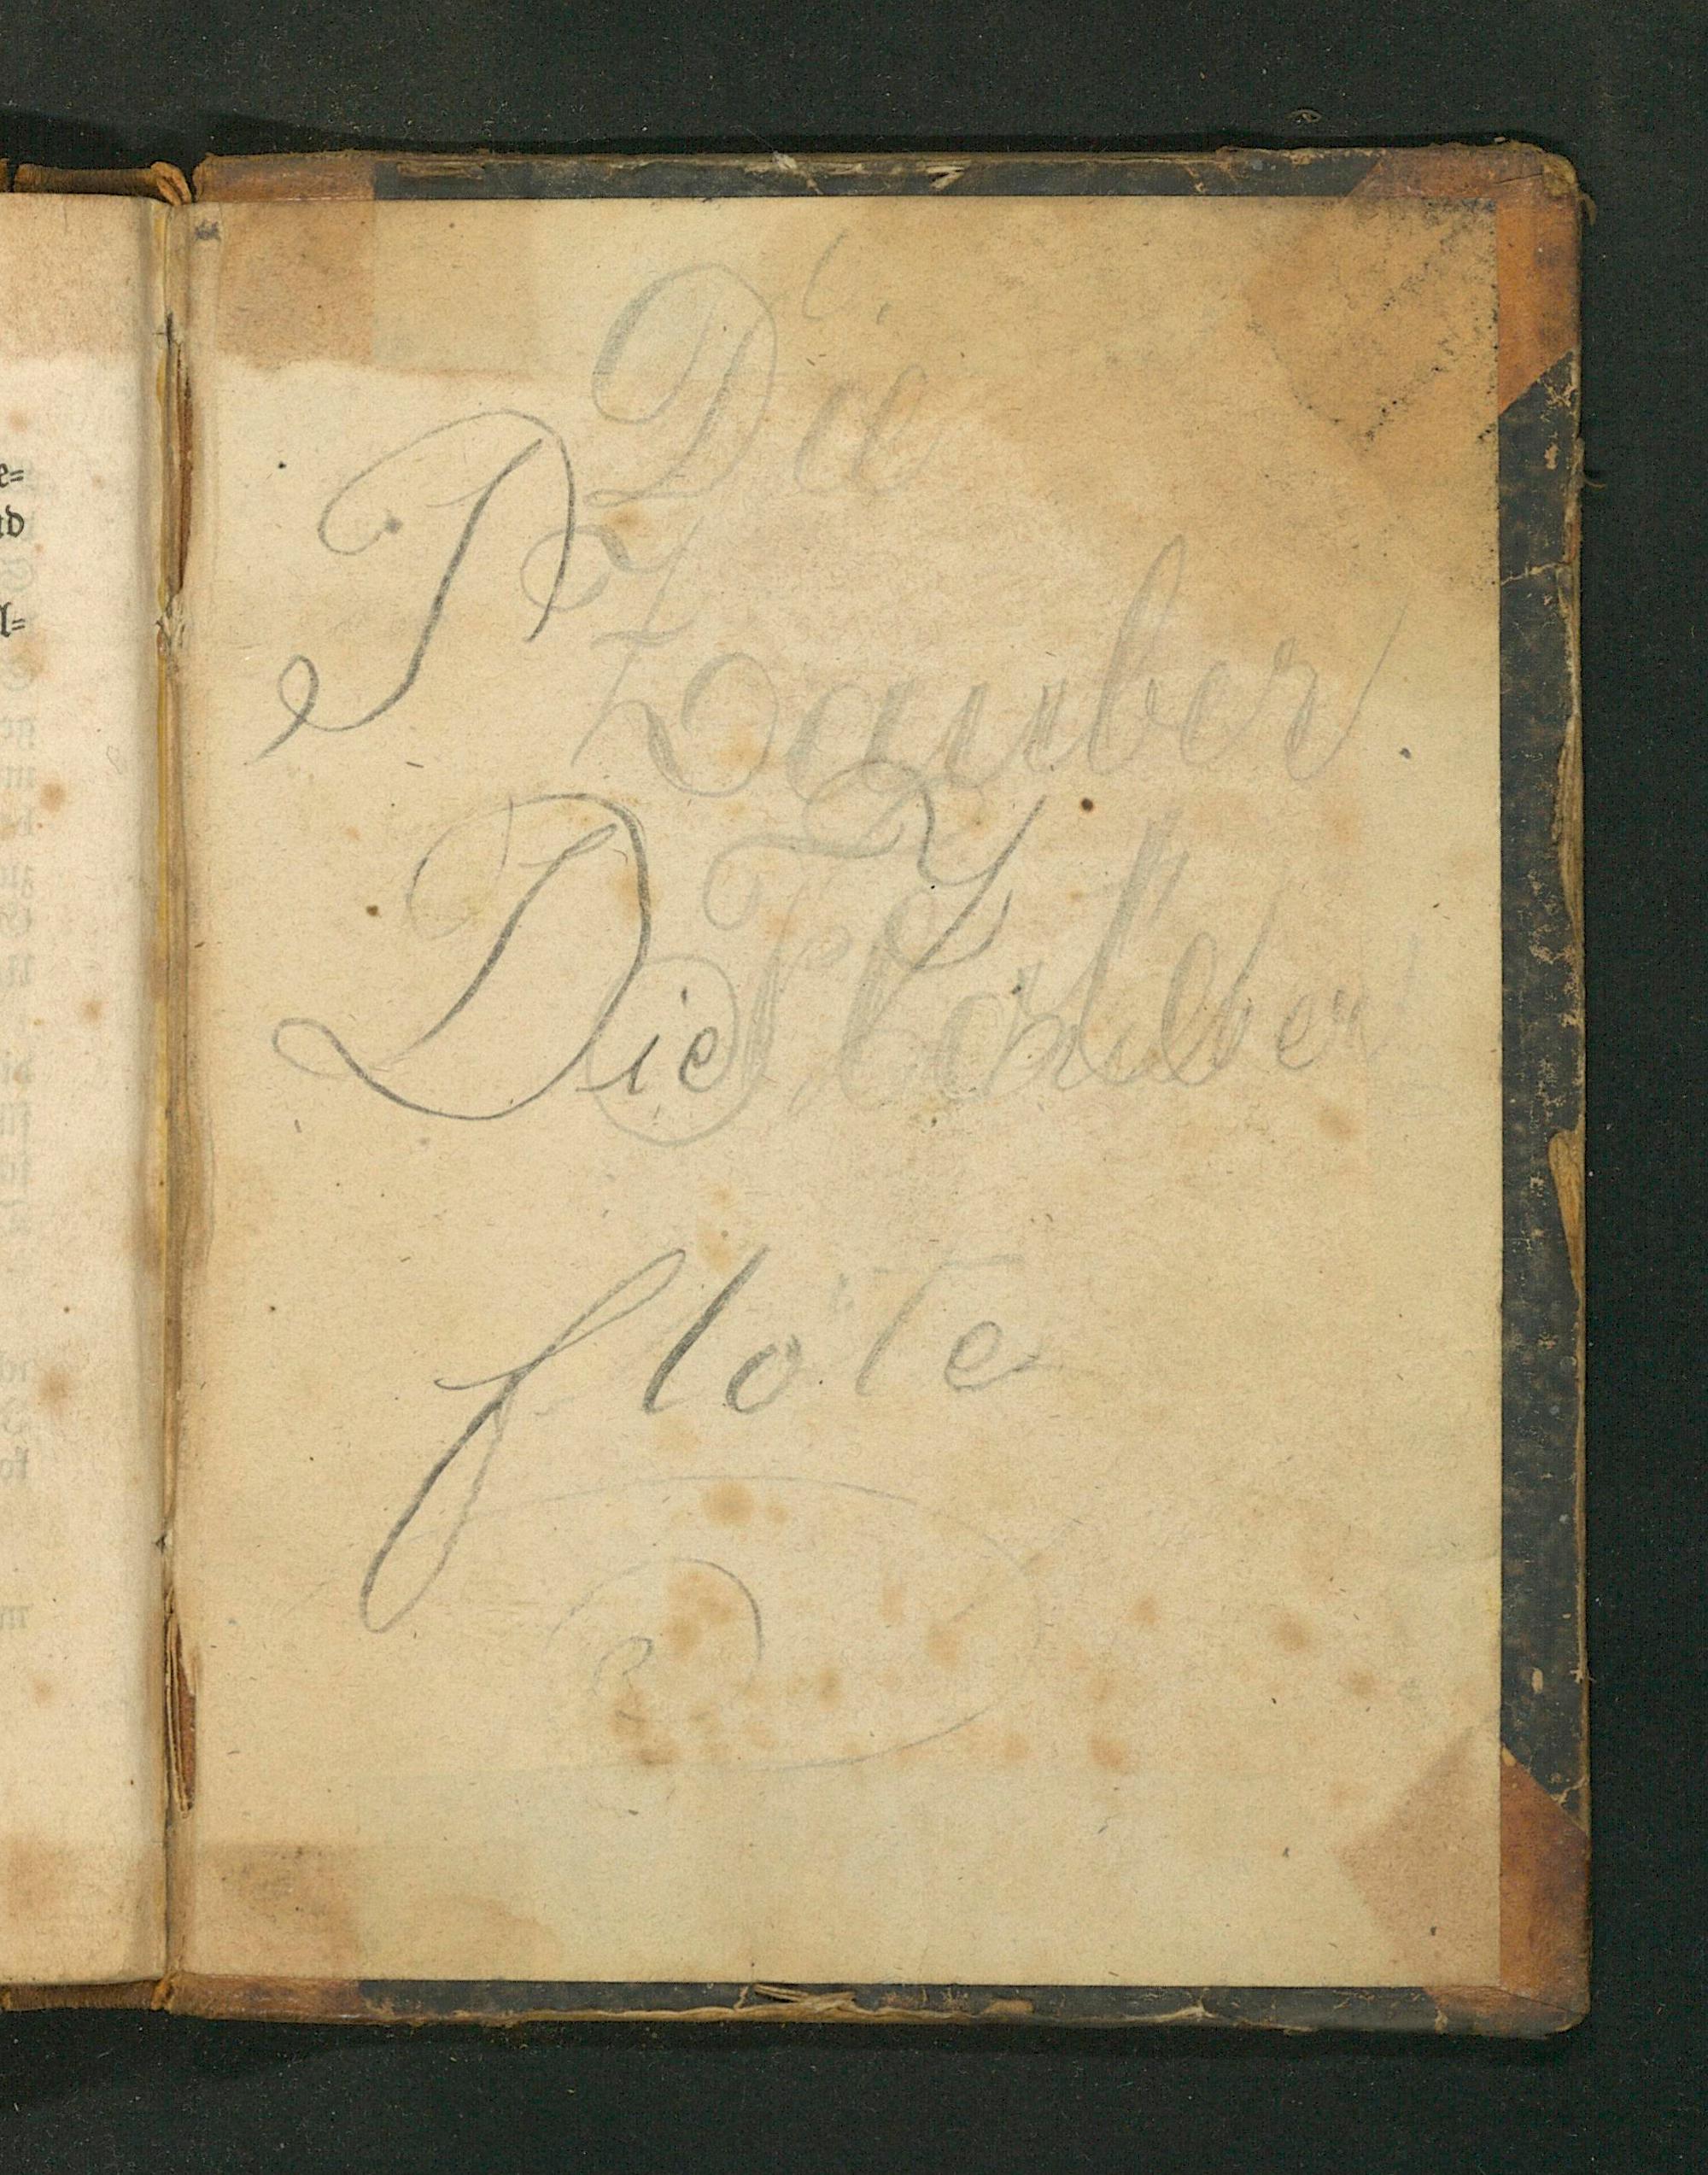 Die
Zauber
Flöte
Die Zauber
flöte